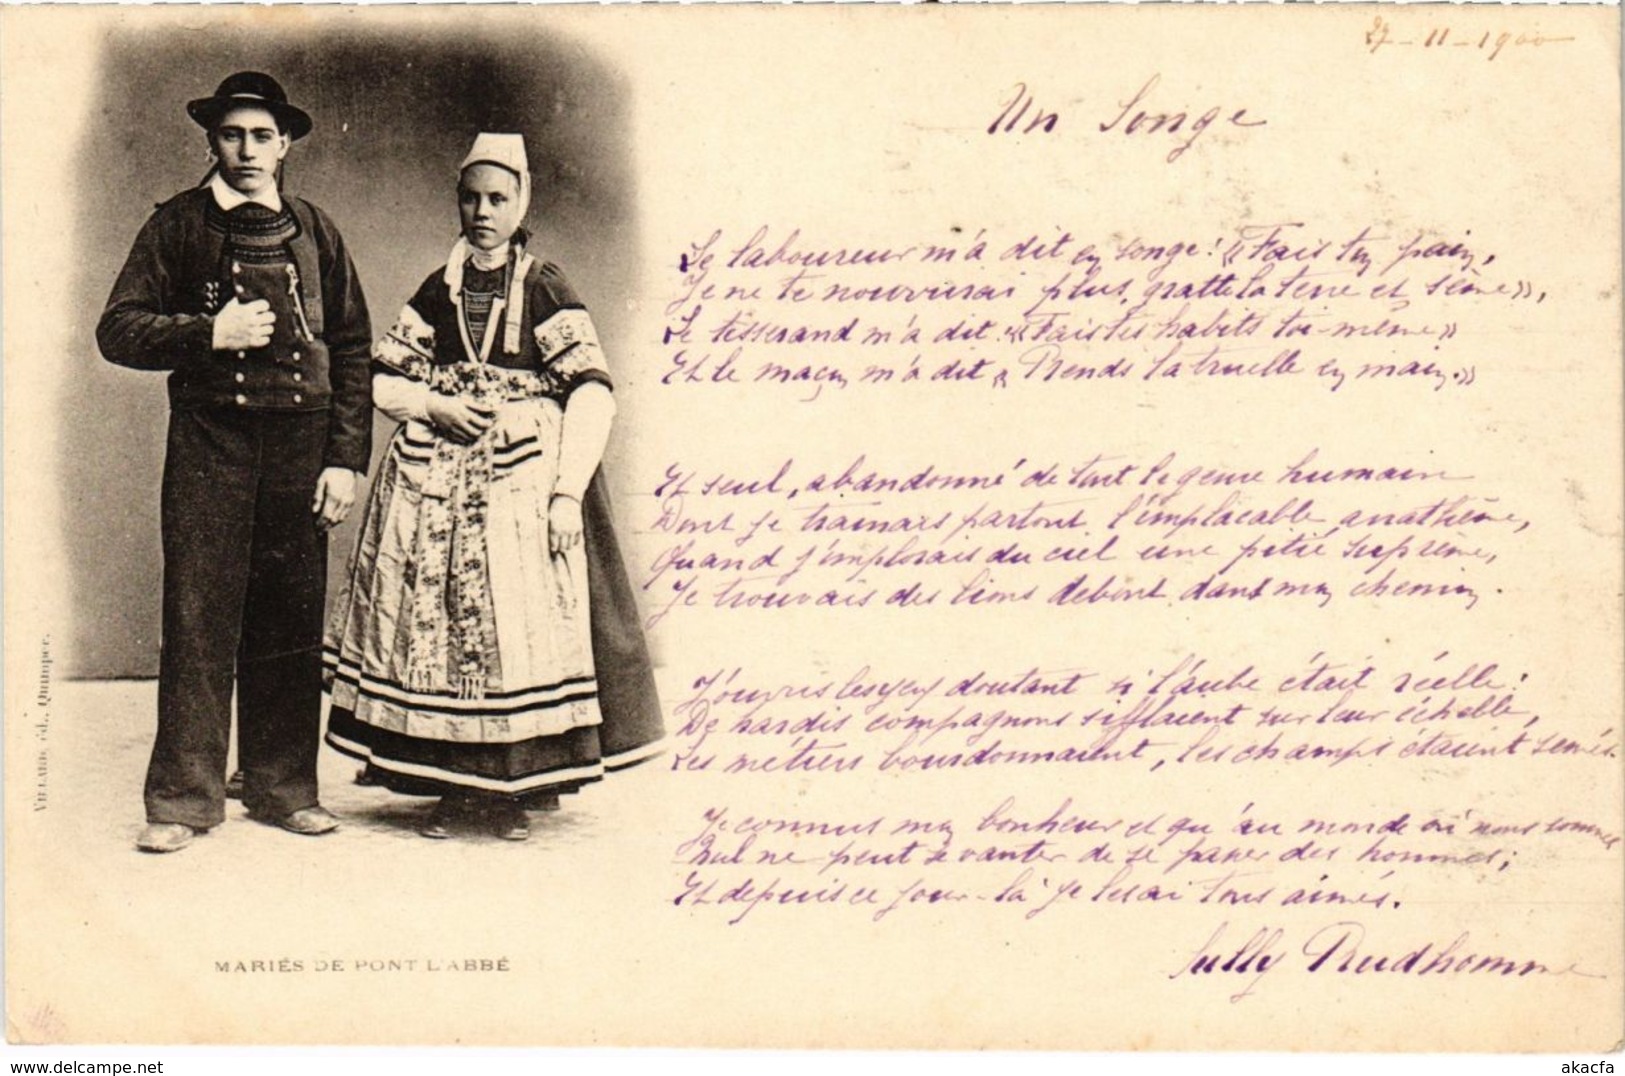 27-11-1900
Un Songe
Le laboureur m'a dit en songe : « Fais ton pain,
Je ne te nourrirai plus, gratte la terre et sème »,
Le tisserand m'a dit : « Fais tes habits toi-même »
Et le maçon m'a dit « Prends la truelle en main. »
Et seul, abandonné de tout le genre humain
Dont je traînais partout l'implacable anathème,
Quand j'implorais du ciel une pitié suprême,
Je trouvais des lions debout dans mon chemin.
J'ouvris les yeux doutant si l'aube était réelle :
De hardis compagnons sifflaient sur leur échelle,
Les métiers bourdonnaient, les champs étaient semés.
Je connus mon bonheur et qu'au monde où nous sommes
Nul ne peut se vanter de se passer des hommes ;
Et depuis ce jour-là je les ai tous aimés.
Sully Prudhomme
VILLARD, éd., Quimper.
MARIÉS DE PONT L'ABBÉ
akacfa